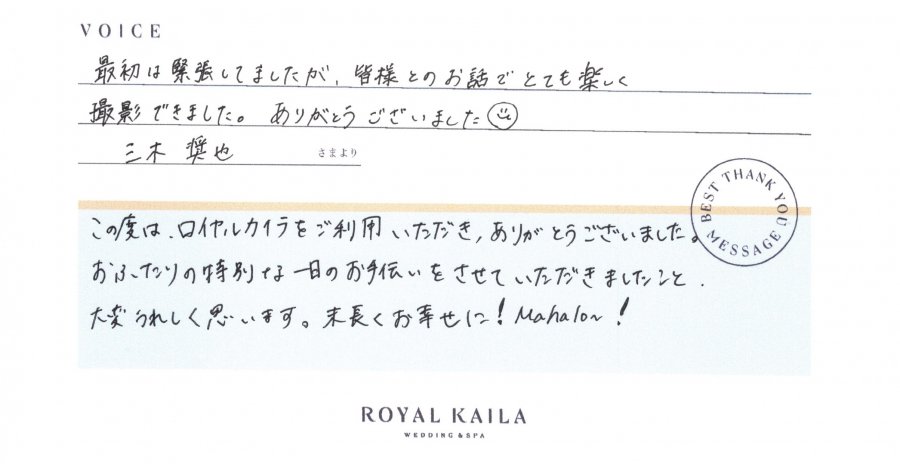 VOICE
最初は緊張してましたが、皆様とのお話でとても楽しく
撮影できました。ありがとうございました
三木 奨也 さまより
BEST THANK YOU MESSAGE
この度は、ロイヤルカイラをご利用いただき、ありがとうございました。
おふたりの特別な一日のお手伝いをさせていただきましたこと、
大変うれしく思います。末長くお幸せに!Mahalo~!
ROYAL KAILA
WEDDING & SPA